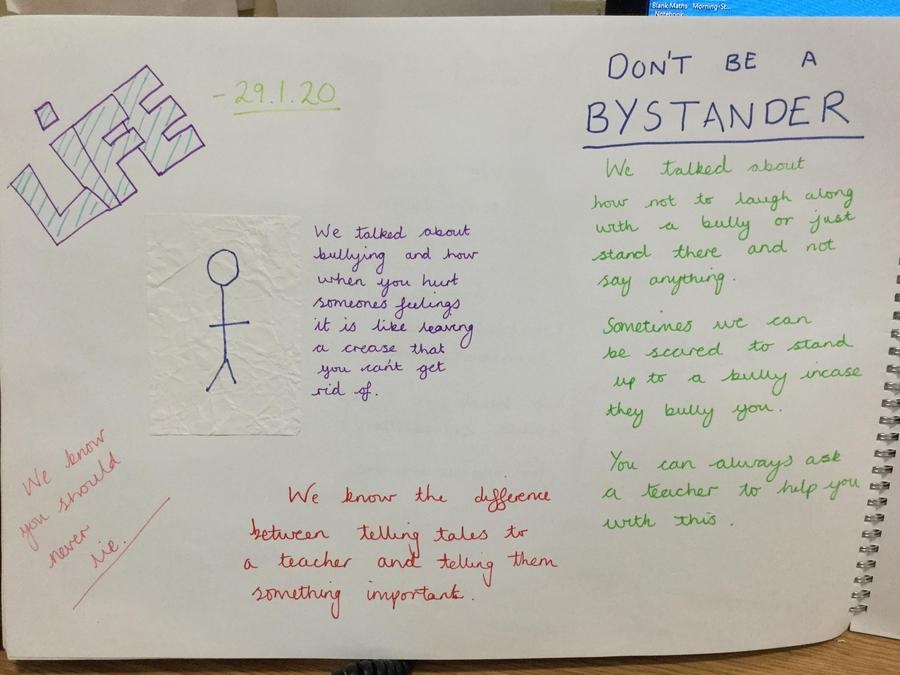 Blank Maths Morning-St...
Notebook
LiFE
- 29.1.20
We talked about
bullying and how
when you hurt
someones feelings
it is like leaving
a crease that
you can't get
rid of.
We know
you should
never
lie.
We know the difference
between telling tales to
a teacher and telling them
something important.
DON'T BE A
BYSTANDER
We talked about
how not to laugh along
with a bully or just
stand there and not
say anything.
Sometimes we can
be scared to stand
up to a bully incase
they bully you.
You can always ask
a teacher to help you
with this.